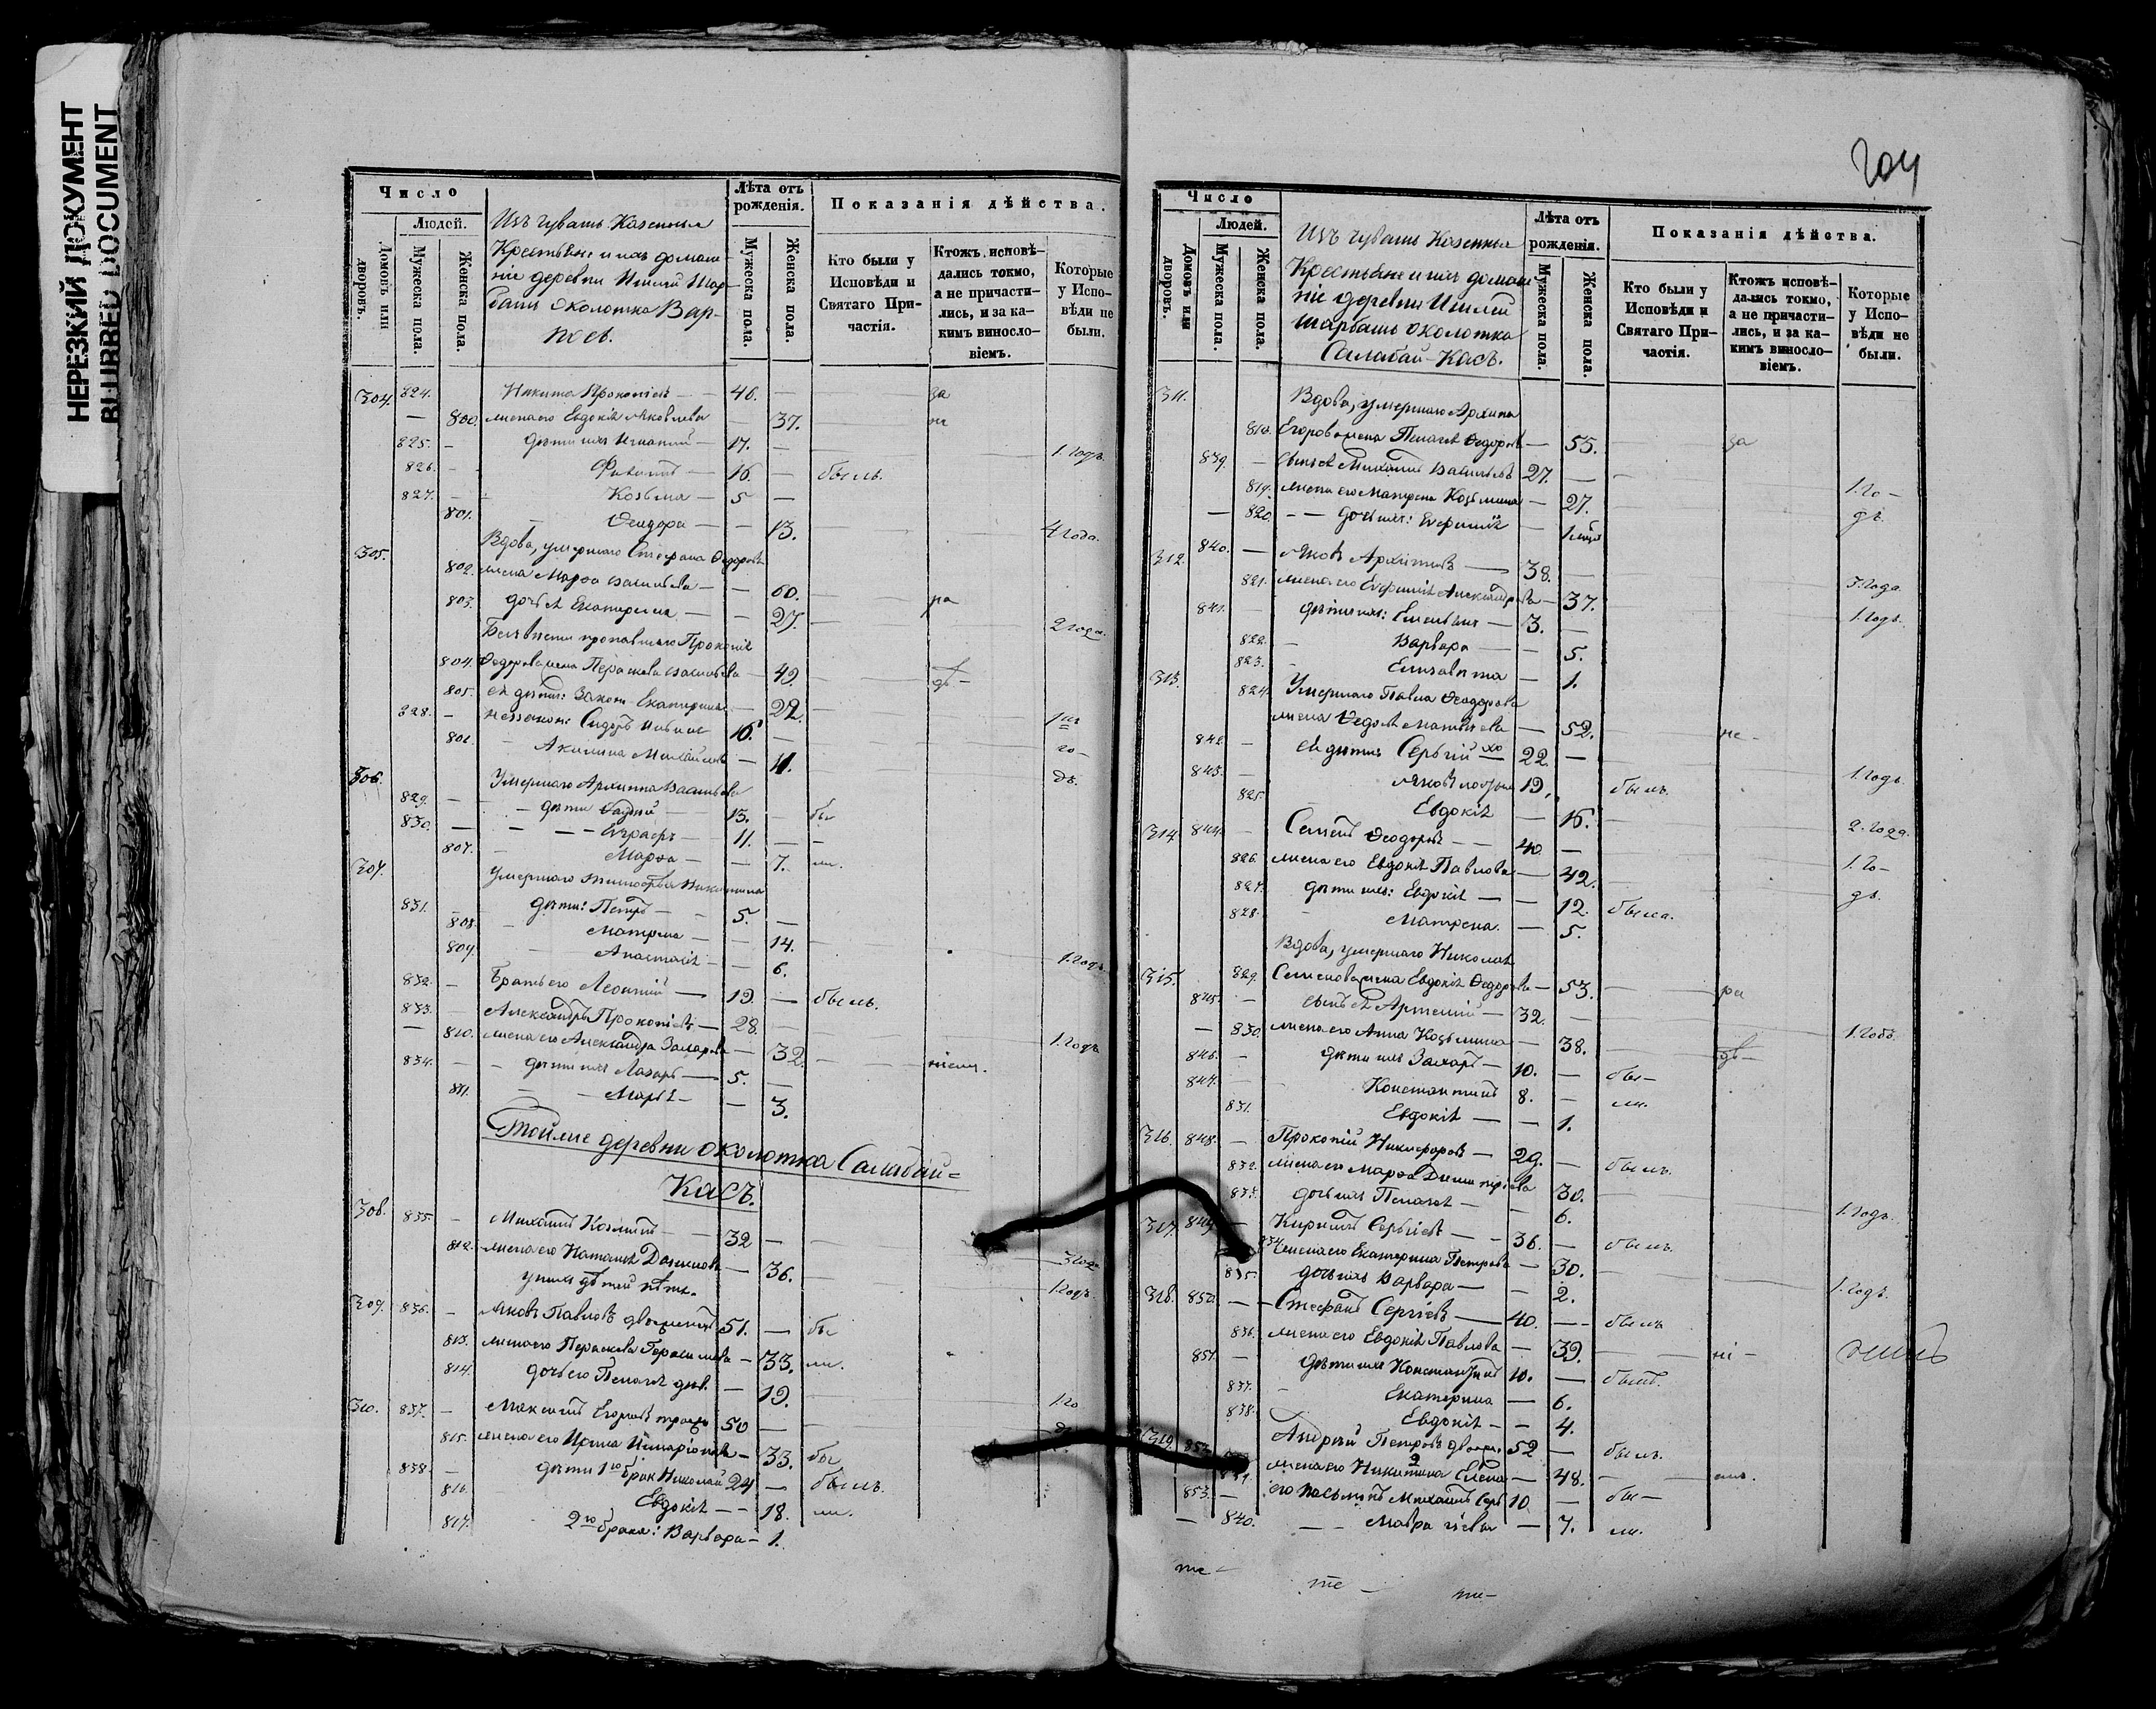 НЕРЕЗКИЙ ДОКУМЕНТ
BLURRED DOCUMENT
Число
Людей.
Домовъ или дворовъ.
Мужеска пола.
Женска пола.
Изъ чувашъ Казенные
Крестьяне и ихъ домаш-
ніе деревни Ишлей Шар-
башъ околотка Вар-
Лѣта отъ рожденія.
Мужеска пола.
Женска пола.
Показанія дѣйства.
Кто были у Исповѣди и Святаго Причастія.
Ктожъ исповѣдались токмо, а не причастились, и за какимъ винословіемъ.
Которые у Исповѣди не были.
304. 824. Никита Прокопіевъ — 46. — за
— 800. жена его Евдокія Яковлева — 37.
825. — дѣти ихъ Игнатій — 17. — 1. годъ.
826. — Филиппъ — 16. — былъ.
827. — Козьма — 5 —
801. — Ѳеодора — 13. 4 года.
305. Вдова, умершаго Стефана Ѳедорова
802. жена Марѳа Васильева — 60. ра
803. дочь ея Екатерина — 27. 2 года.
Безъ вѣсти пропавшаго Прокопія
804. Ѳедорова жена Параскева Васильева — 49. дѣ-
805. ея дѣти: закон. Екатерина — 22.
828. — незакон: Сидоръ 16. —
806. Акилина Михайлова — 11. го-
306. Умершаго Архиппа Васильева дъ.
829. — дѣти Ѳадей — 13. — бы
830. — Евграфъ — 11. —
807. Марѳа — 7. ли.
307. Умершаго Тимоѳея Никитина
831. дѣти: Петръ — 5. —
808. Матрена — 14.
809. Анастасія — 6. 1. годъ
832. — Братъ его Леонтій — 19. — былъ.
833. — Александръ Прокопіевъ — 28. —
— 810. жена его Александра Захарова — 32. 1. годъ
834. — дѣти ихъ Лазарь — 5. — ніемъ.
811. — Марья — 3.
Тойже деревни околотка Салабай-
Касъ.
308. 835. — Михаилъ Козьминъ — 32 —
812. жена его Наталья Данилова — 36. 3 года
у нихъ дѣтей нѣтъ. 1. годъ.
309. 836. — Яковъ Павловъ двоеженецъ 51. — бы
813. жена его Параскева Герасимова — 33. ли.
814. дочь его Пелагея дѣв. — 19.
310. 837. — Максимъ Егоровъ троеж 50 — 1. го
815. жена его Ирина Иларіонова — 33. бы
838. — дѣти 1го брак Николай 24 — былъ.
816. Евдокія — 18. ли.
817. 2го брака: Варвара — 1.
204
Число
Людей.
Домовъ или дворовъ.
Мужеска пола.
Женска пола.
Изъ чувашъ Казенные
Крестьяне и ихъ домаш
ніе деревни Ишлей
Шарбашъ околотка
Салабай-Касъ.
Лѣта отъ рожденія.
Мужеска пола.
Женска пола.
Показанія дѣйства.
Кто были у Исповѣди и Святаго Причастія.
Ктожъ исповѣдались токмо, а не причастились, и за какимъ винословіемъ.
Которые у Исповѣди не были.
311. Вдова, умершаго Архипа
818. Егорова жена Пелагея Ѳедорова — 55. за
839. — сынъ ея Михаилъ Васильевъ 27. —
819. жена его Матрена Козьмина — 27. 1. го-
— 820. — дочь ихъ: Евфимія — дъ.
312. 840. — Яковъ Архиповъ — 38. —
821. жена его Евфимія Александрова — 37. 3. года
841. — дѣти ихъ: Емельянъ — 3. — 1. годъ.
822. — Варвара — 5.
823. — Елизавета — 1.
313. 824. Умершаго Павла Ѳеодорова
жена Ѳедосья Матвѣева — 52. не-
842. — ея дѣти Сергій хо 22. —
843. — Яковъ холост 19. былъ. 1. годъ.
825. Евдокія — 16.
314. 844. — Семенъ Ѳеодоровъ — 40 — 2. года.
826. жена его Евдокія Павлова — 42. 1. го-
827. дѣти ихъ: Евдокія — 12. была. дъ.
828. — Матрена. — 5.
Вдова, умершаго Николая
315. 829. Семенова жена Евдокія Ѳедорова — 53. ра
845. — сынъ ея Артемій — 32.
— 830. жена его Анна Козьмина — 38. дѣ- 1. годъ.
846. — дѣти ихъ Захаръ — 10. — бы-
847. — Константинъ 8. — ли.
831. Евдокія — 1.
316. 848. — Прокопій Никифоровъ — 29. — былъ.
832. жена его Марѳа Дмитріева 30.
833. дочь ихъ Пелагея — 6. 1. годъ.
317. 849. — Кириллъ Сергіевъ — 36. — былъ.
834. жена его Екатерина Петрова — 30.
835. дочь ихъ Варвара — 2. 1. годъ.
318. 850. — Стефанъ Сергіевъ — 40. — былъ
836. жена его Евдокія Павлова — 39. ні-
851. — дѣти ихъ Константинъ 10. — былъ.
837. — Екатерина — 6.
838. Евдокія — 4.
319. 852. Андрей Петровъ двоеж. 52 — былъ.
839. жена его Никитина Елена — 48. емъ.
853. — его пасынокъ Михаилъ Сер 10 — бы-
— 840. — Мавра гіевы — 7. ли.
те- те- те-